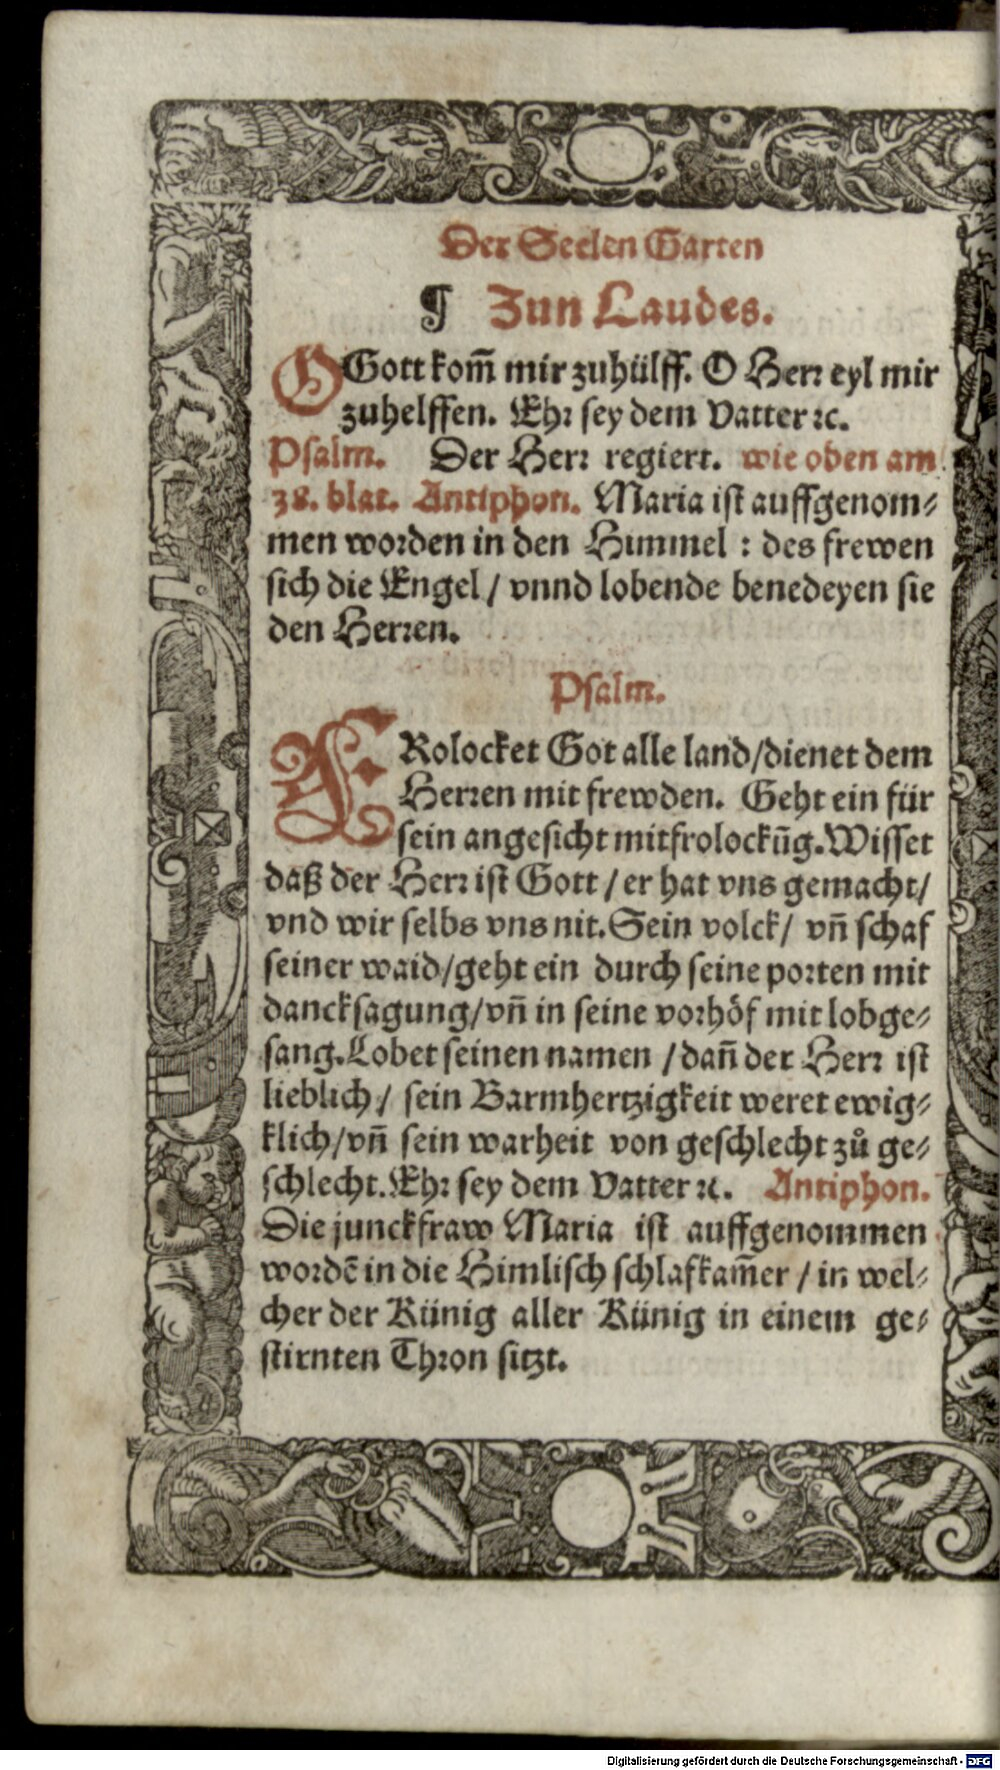 Der Seelen Garten
¶ Zun Laudes.
O Gott kom̃ mir zuhülff. O Herr eyl mir
zuhelffen. Ehr sey dem Vatter ꝛc.
Psalm. Der Herr regiert. wie oben am
38. blat. Antiphon. Maria ist auffgenom⸗
men worden in den Himmel : des frewen
sich die Engel / vnnd lobende benedeyen sie
den Herren.
Psalm.
FRolocket Got alle land/dienet dem
Herren mit frewden. Geht ein für
sein angesicht mit frolockũg. Wisset
daß der Herr ist Gott / er hat vns gemacht/
vnd wir selbs vns nit. Sein volck/ vñ schaf
seiner waid/geht ein durch seine porten mit
dancksagung/vñ in seine vorhöf mit lobge⸗
sang. Lobet seinen namen / dañ der Herr ist
lieblich / sein Barmhertzigkeit weret ewig⸗
klich/vñ sein warheit von geschlecht zů ge⸗
schlecht. Ehr sey dem Vatter ꝛc. Antiphon.
Die junckfraw Maria ist auffgenommen
wordẽ in die Himlisch schlafkam̃er / in wel⸗
cher der Künig aller Künig in einem ge⸗
stirnten Thron sitzt.
Digitalisierung gefördert durch die Deutsche Forschungsgemeinschaft - DFG